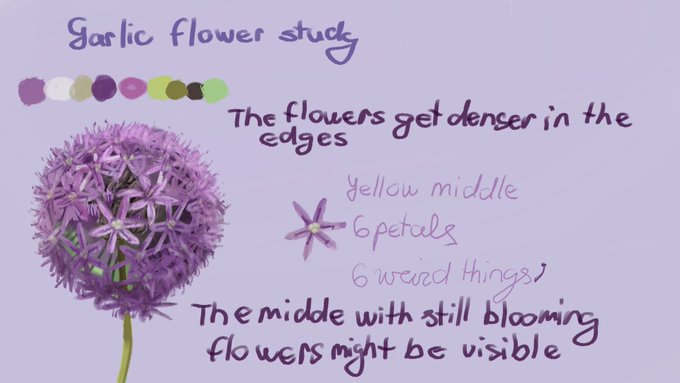 Garlic flower study
The flowers get denser in the
edges
Yellow middle
6 petals
6 weird things,
The midde with still blooming
flowers might be visible